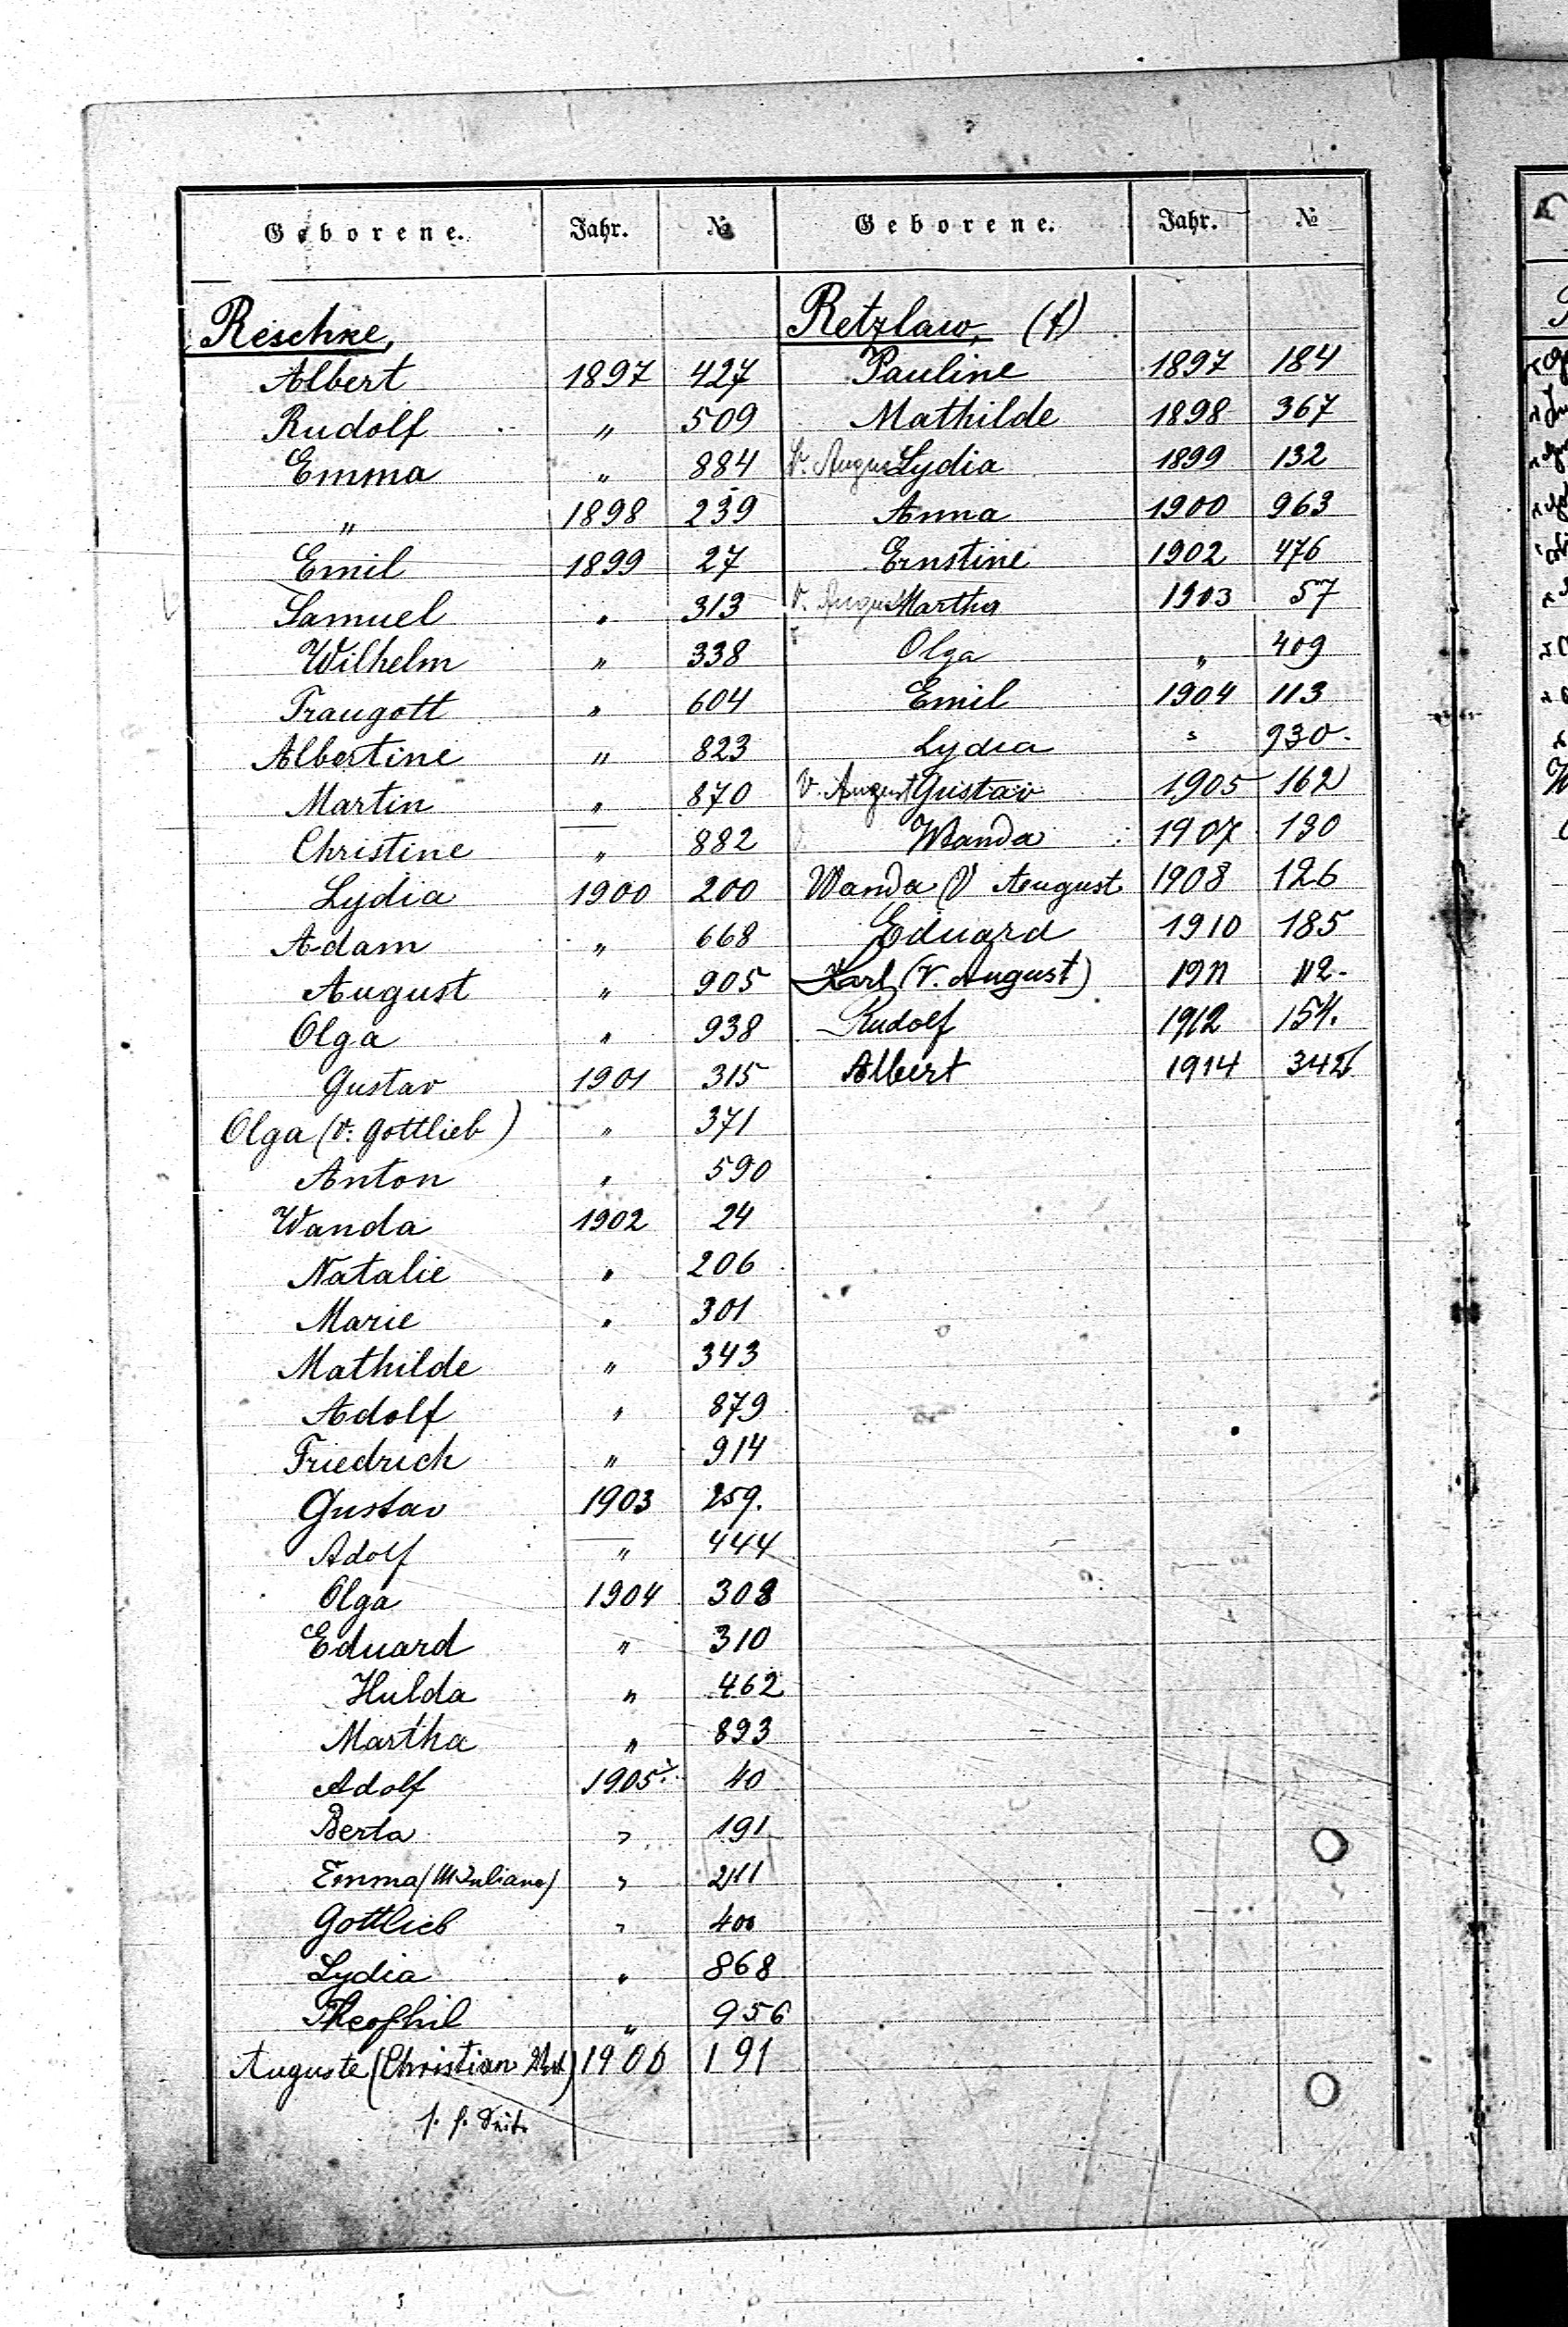 Geborene. Jahr. №
Reschke,
Albert 1897 427
Rudolf " 509
Emma " 884
" 1898 239
Emil 1899 27
Samuel " 313
Wilhelm " 338
Traugott " 604
Albertine " 823
Martin " 870
Christine " 882
Lydia 1900 200
Adam " 668
August " 905
Olga " 938
Gustav 1901 315
Olga (V. Gottlieb) " 371
Anton " 590
Wanda 1902 24
Natalie " 206
Marie " 301
Mathilde " 343
Adolf " 879
Friedrich " 914
Gustav 1903 259.
Adolf " 444
Olga 1904 308
Eduard " 310
Hulda " 462
Martha " 893
Adolf 1905 40
Berta " 191
Emma (M Juliane) " 211
Gottlieb " 400
Lydia " 868
Theophil " 956
Auguste (Christian 1906 191
Geborene. Jahr. №
Retzlaw, (f)
Pauline 1897 184
Mathilde 1898 367
V. August Lydia 1899 132
Anna 1900 963
Ernstine 1902 476
V. August Martha 1903 57
Olga " 409
Emil 1904 113
Lydia " 930.
V. August Gustav 1905 162
Wanda 1907 130
Wanda (V August 1908 126
Eduard 1910 185
Karl (V. August) 1911 112.
Rudolf 1912 154.
Albert 1914 342